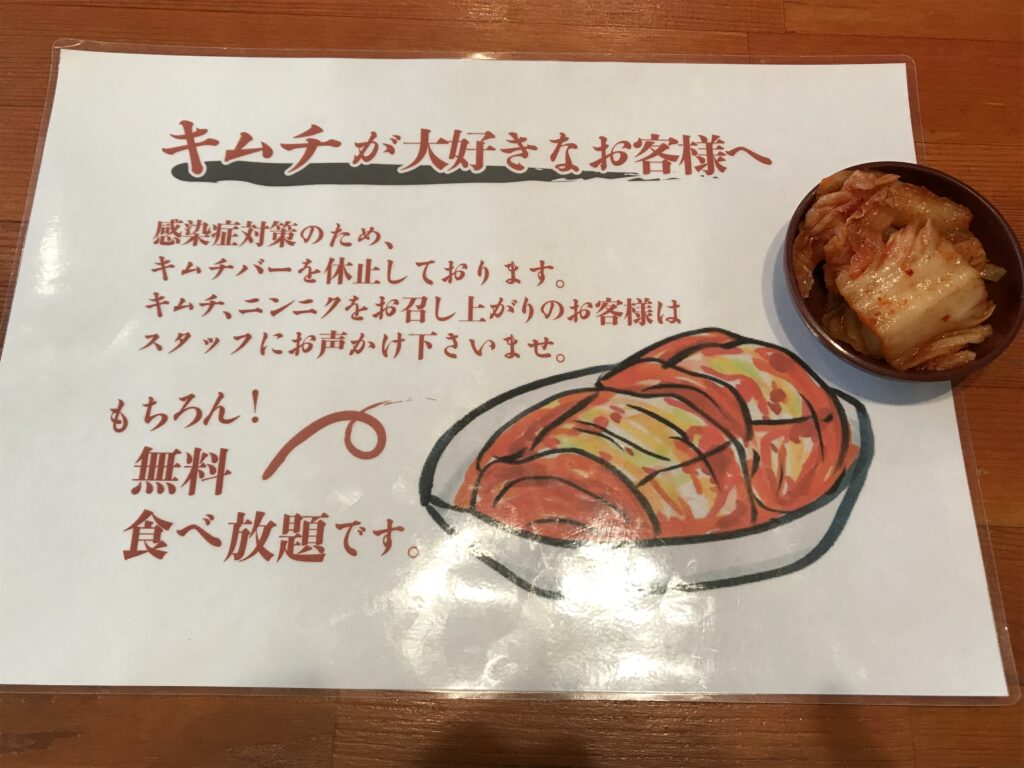 キムチが大好きなお客様へ
感染症対策のため、
キムチバーを休止しております。
キムチ、ニンニクをお召し上がりのお客様は
スタッフにお声かけ下さいませ。
もちろん!
無料
食べ放題です。